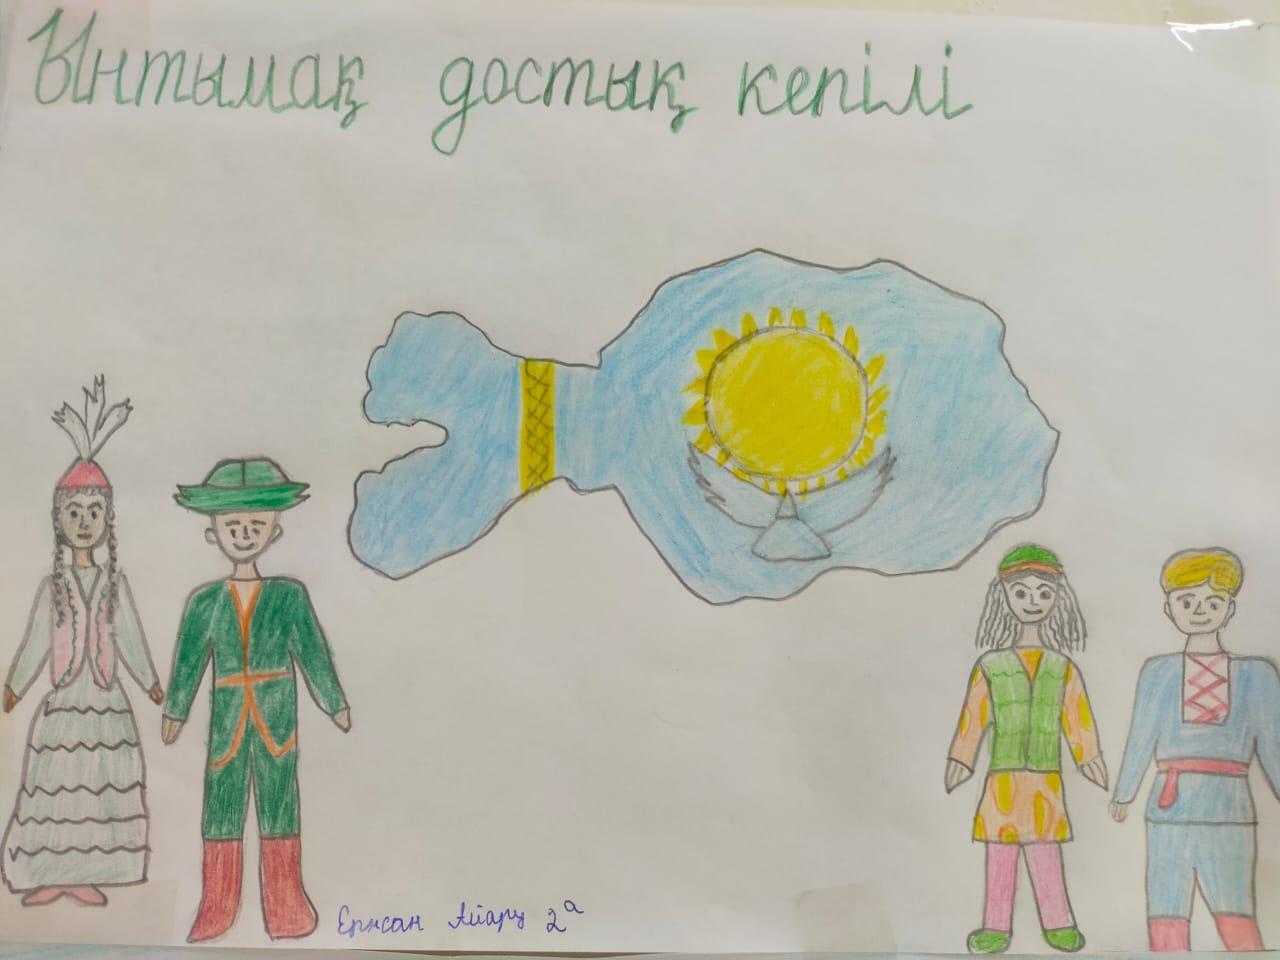 Ынтымақ достық кепілі
Ернсан Айару 2ᵃ